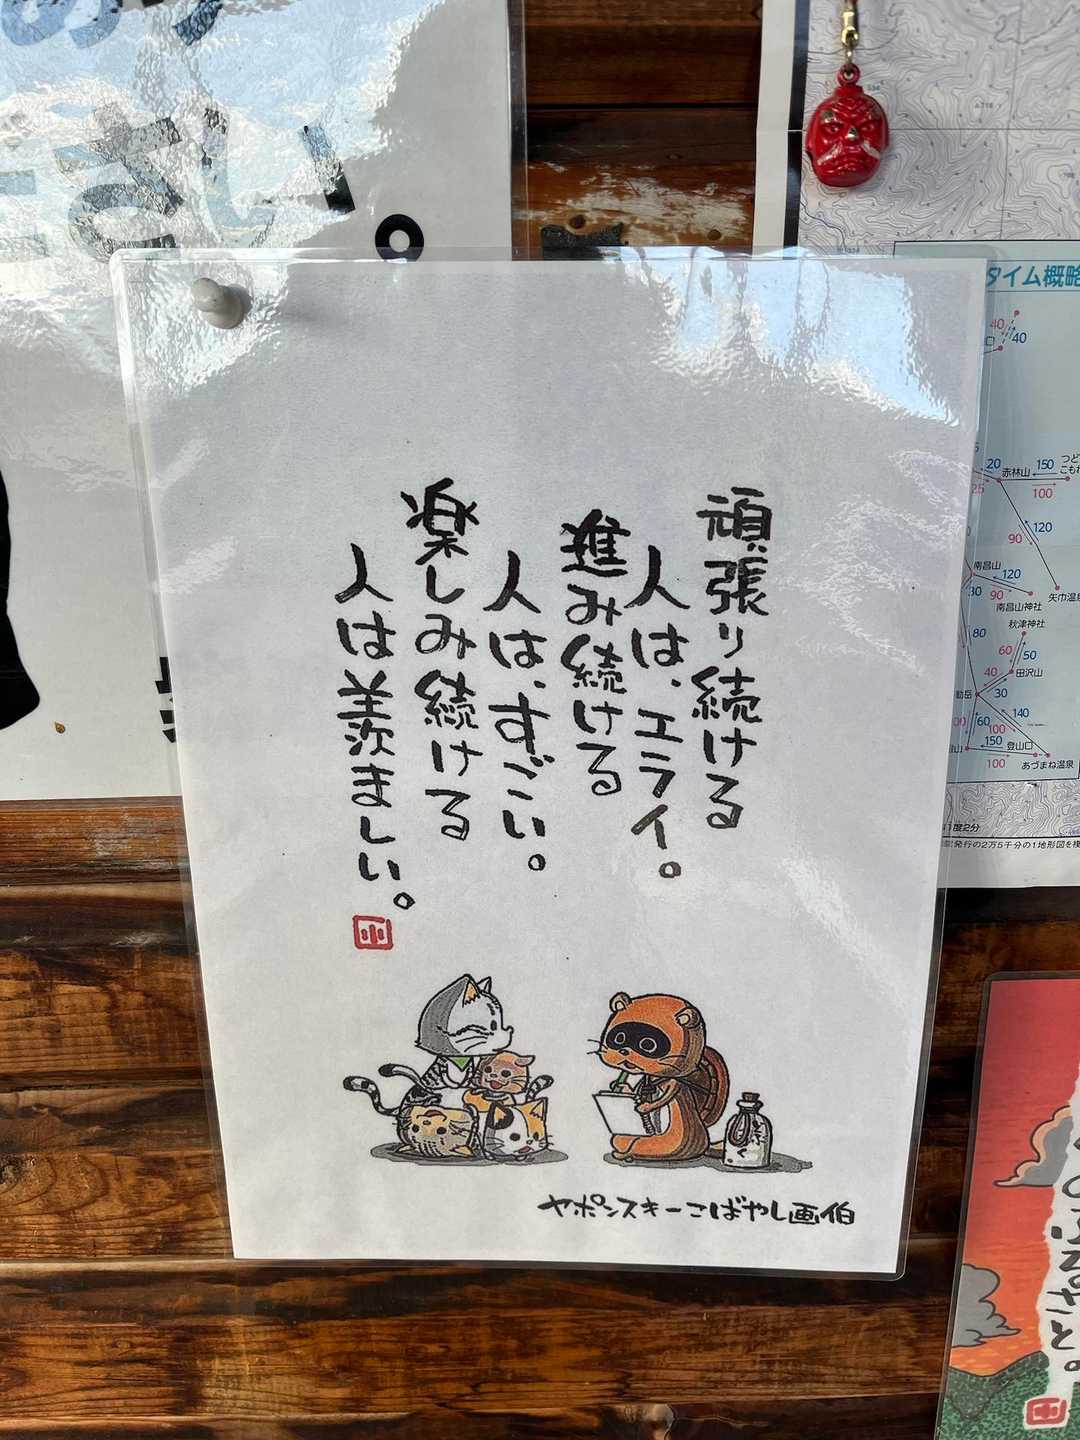 さい。
頑張り続ける
人は、エライ。
進み続ける
人は、すごい。
楽しみ続ける
人は羨ましい。
ヤポンスキーこばやし画伯
タイム概略
40
40
20
赤林山
150
100
25
120
90
南昌山
120
90
30
南昌山神社
矢巾温泉
秋津神社
80
60
50
40
田沢山
30
140
60
100
150
登山口
100
あづまね温泉
発行の2万5千分の1地形図を複
ふるさと。